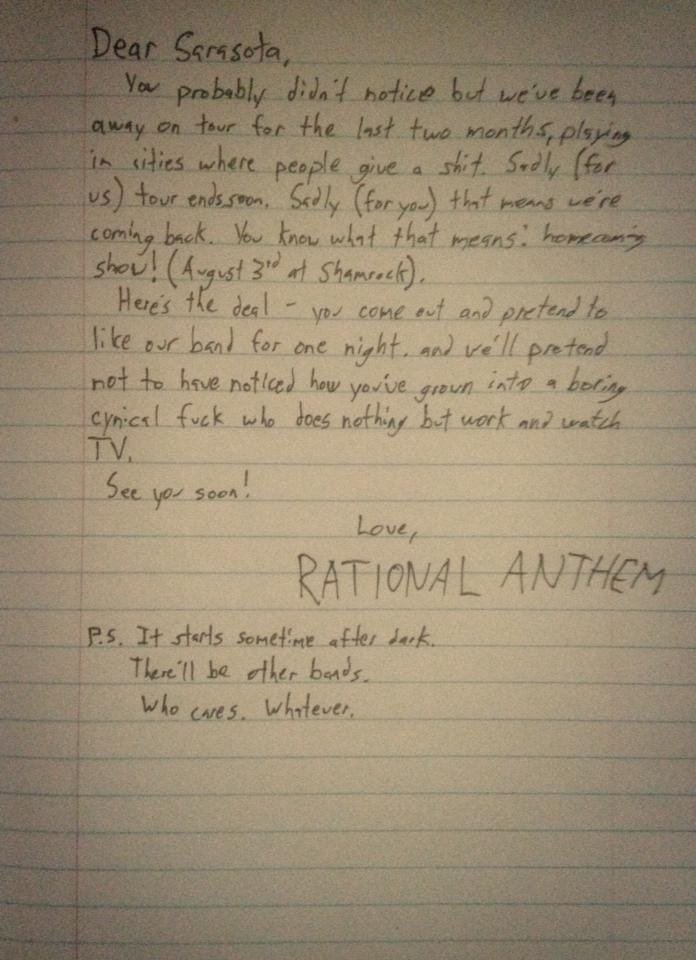 Dear Sarasota,
You probably didn't notice but we've been
away on tour for the last two months, playing
in cities where people give a shit. Sadly (for
us) tour ends soon. Sadly (for you) that means we're
coming back. You know what that means: homecoming
show! (August 3rd at Shamrock).
Here's the deal - you come out and pretend to
like our band for one night, and we'll pretend
not to have noticed how you've grown into a boring
cynical fuck who does nothing but work and watch
TV.
See you soon!
Love,
RATIONAL ANTHEM
P.S. It starts sometime after dark.
There'll be other bands.
Who cares. Whatever.